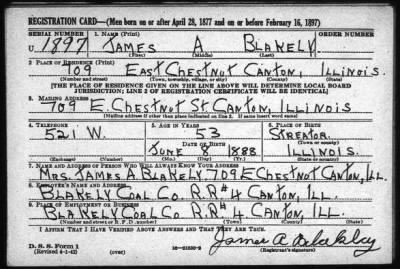 REGISTRATION CARD—(Men born on or after April 28, 1877 and on or before February 16, 1897)
SERIAL NUMBER 1. NAME (Print) ORDER NUMBER
U 1897 JAMES A BLAKELY
(First) (Middle) (Last)
2. PLACE OF RESIDENCE (Print)
709 EAST CHESTNUT CANTON, ILLINOIS.
(Number and street) (Town, township, village, or city) (County) (State)
[THE PLACE OF RESIDENCE GIVEN ON THE LINE ABOVE WILL DETERMINE LOCAL BOARD
JURISDICTION; LINE 2 OF REGISTRATION CERTIFICATE WILL BE IDENTICAL]
3. MAILING ADDRESS
709 E. CHESTNUT ST CANTON, ILLINOIS
[Mailing address if other than place indicated on line 2. If same insert word same]
4. TELEPHONE 5. AGE IN YEARS 6. PLACE OF BIRTH
521 W. 53 STREATOR.
DATE OF BIRTH (Town or county)
JUNE 8 1888 ILLINOIS.
(Exchange) (Number) (Mo.) (Day) (Yr.) (State or country)
7. NAME AND ADDRESS OF PERSON WHO WILL ALWAYS KNOW YOUR ADDRESS
MRS. JAMES A BLAKELY. 709 E CHESTNUT CANTON, ILL.
8. EMPLOYER'S NAME AND ADDRESS
BLAKELY COAL CO. R.R#4 CANTON, ILL.
9. PLACE OF EMPLOYMENT OR BUSINESS
BLAKELY COAL CO. R.R#4 CANTON, ILL.
(Number and street or R. F. D. number) (Town) (County) (State)
I AFFIRM THAT I HAVE VERIFIED ABOVE ANSWERS AND THAT THEY ARE TRUE.
James A Blakley
D. S. S. Form 1
(Revised 4-1-42) (over) 16-21630-2 (Registrant's signature)